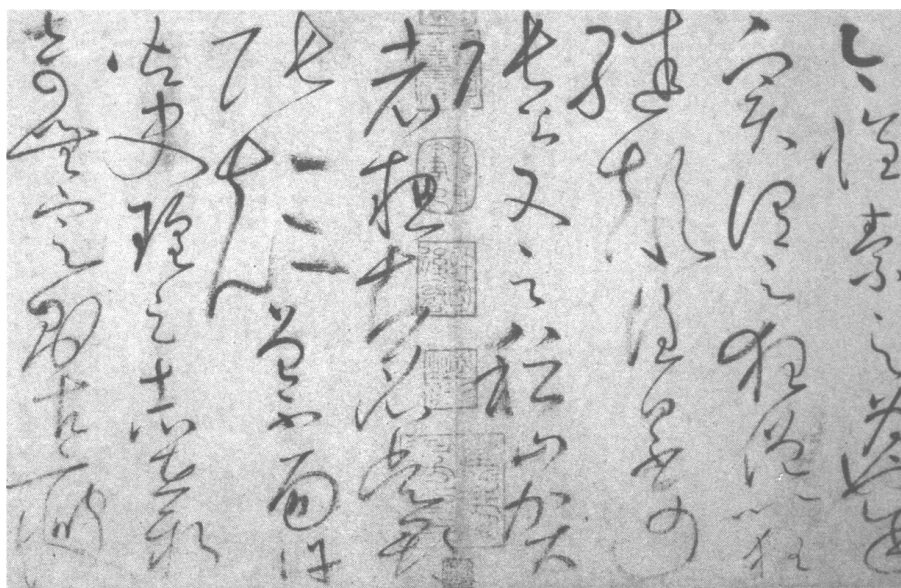 今懷素之為也余
實謂之狂僧以狂
繼顛誰曰不可
張公又云稽山賀
老粗知名吳郡
張顛曾不面許
御史瑝云志在新
奇無定則古瘦